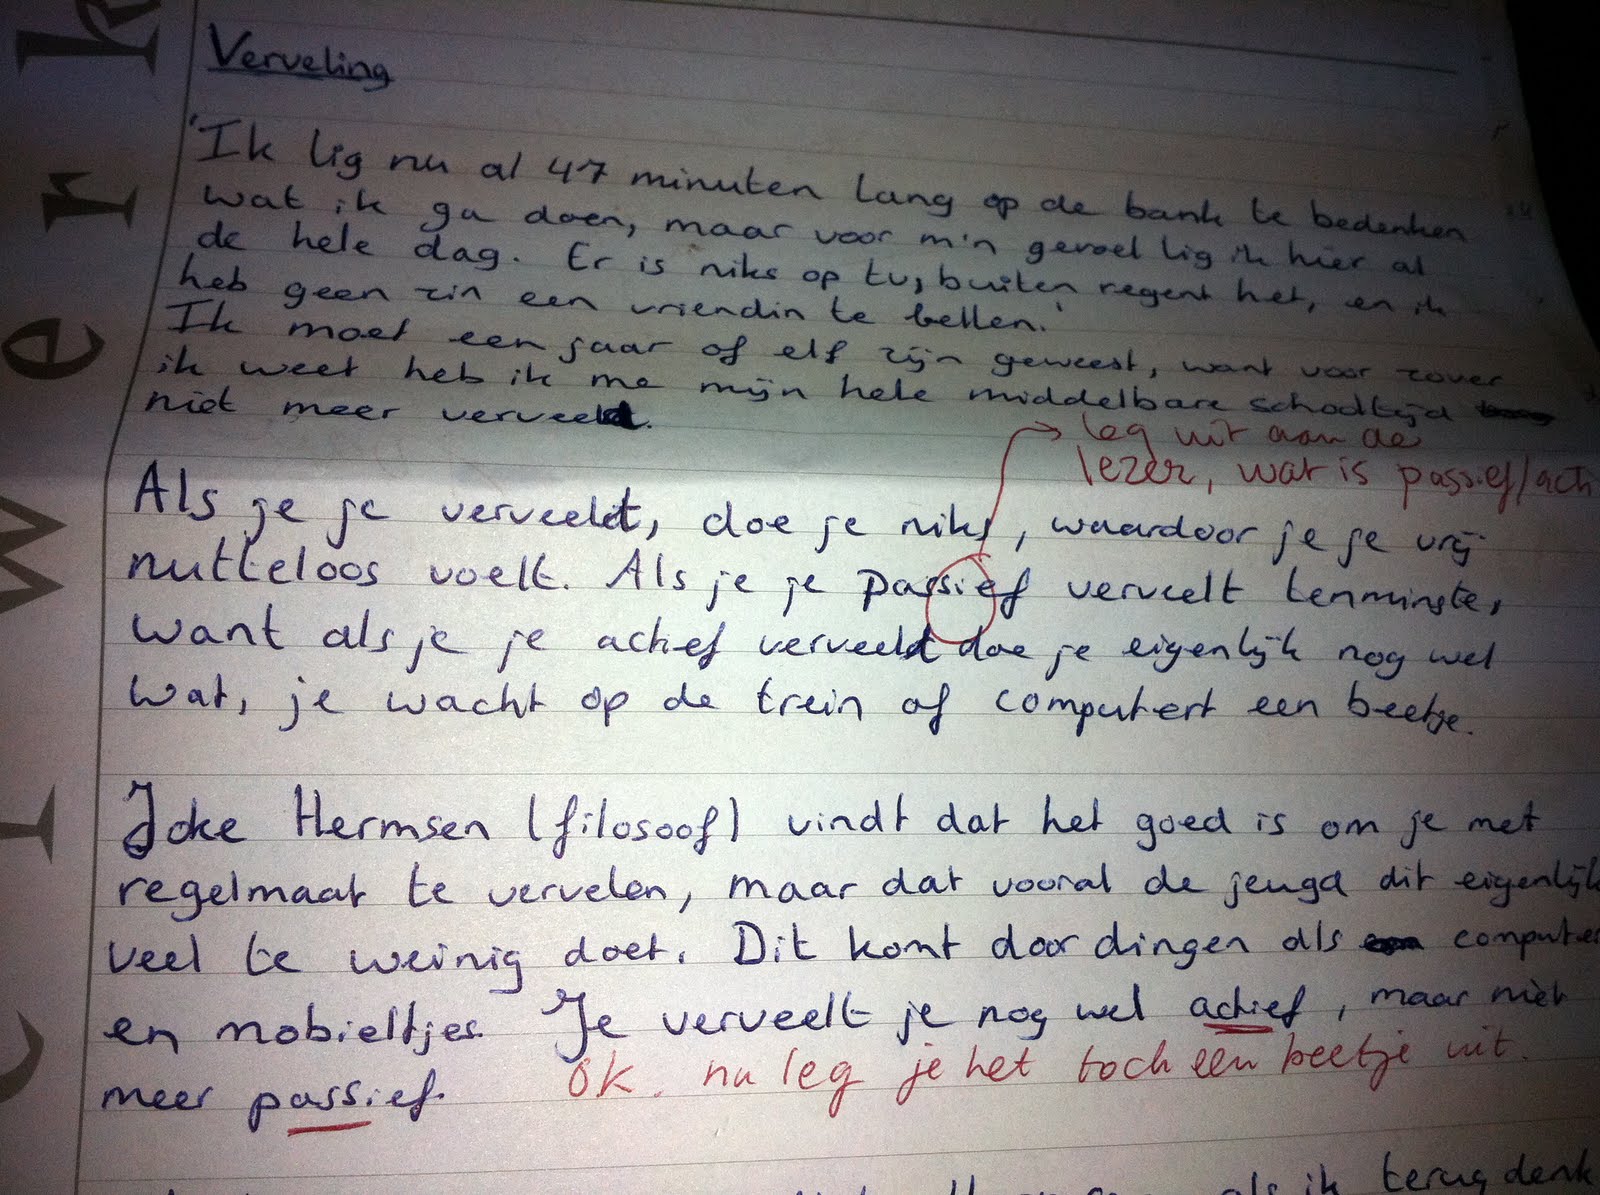 Verveling
'Ik lig nu al 47 minuten lang op de bank te bedenken
wat ik ga doen, maar voor m'n gevoel lig ik hier al
de hele dag. Er is niks op tv, buiten regent het, en ik
heb geen zin een vriendin te bellen.'
Ik moet een jaar of elf zijn geweest, want voor zover
ik weet heb ik me mijn hele middelbare schooltijd
niet meer verveeld.
leg uit aan de
lezer, wat is passief/acti
Als je je verveelt, doe je niks, waardoor je je vrij
nutteloos voelt. Als je je passief verveelt tenminste,
want als je je actief verveelt doe je eigenlijk nog wel
wat, je wacht op de trein of computert een beetje.
Joke Hermsen (filosoof) vindt dat het goed is om je met
regelmaat te vervelen, maar dat vooral de jeugd dit eigenlijk
veel te weinig doet. Dit komt door dingen als computer
en mobieltjes. Je verveelt je nog wel actief, maar niet
meer passief.
ok. nu leg je het toch een beetje uit.
als ik terug denk